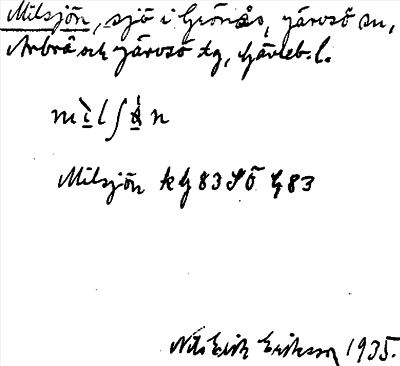 Milsjön, sjö i Grönås, Järvsö sn,
Arbrå och Järvsö tg, Gävleb. l.
Milsjön kg 83 SÖ G 83
Nils Erik Eriksson 1935.